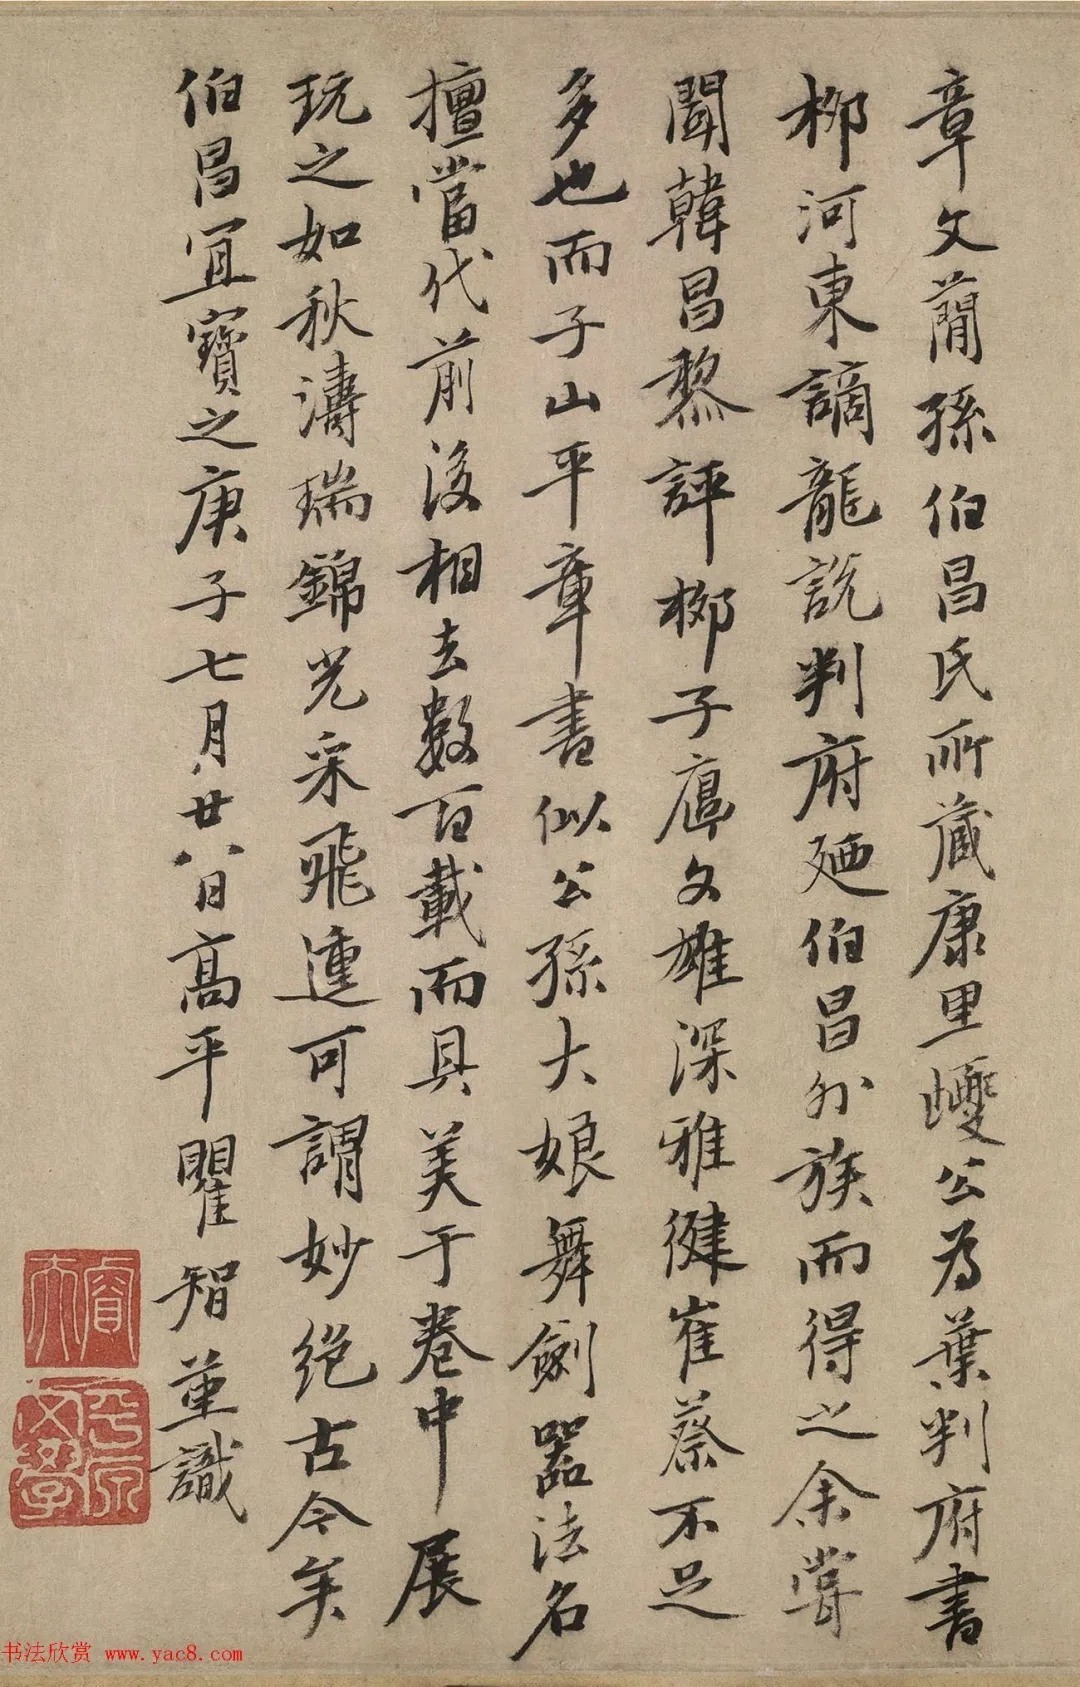 章文簡孫伯昌氏所藏康里巙公為葉判府書
柳河東謫龍說判府廼伯昌外族而得之余嘗
聞韓昌黎評柳子厚文雄深雅健崔蔡不足
多也而子山平章書似公孫大娘舞劍器法名
擅當代前後相去數百載而具美于卷中展
玩之如秋濤瑞錦光采飛運可謂妙絕古今矣
伯昌宜寶之庚子七月廿八日高平瞿智董識
睿夫
書法欣赏 www.yac8.com